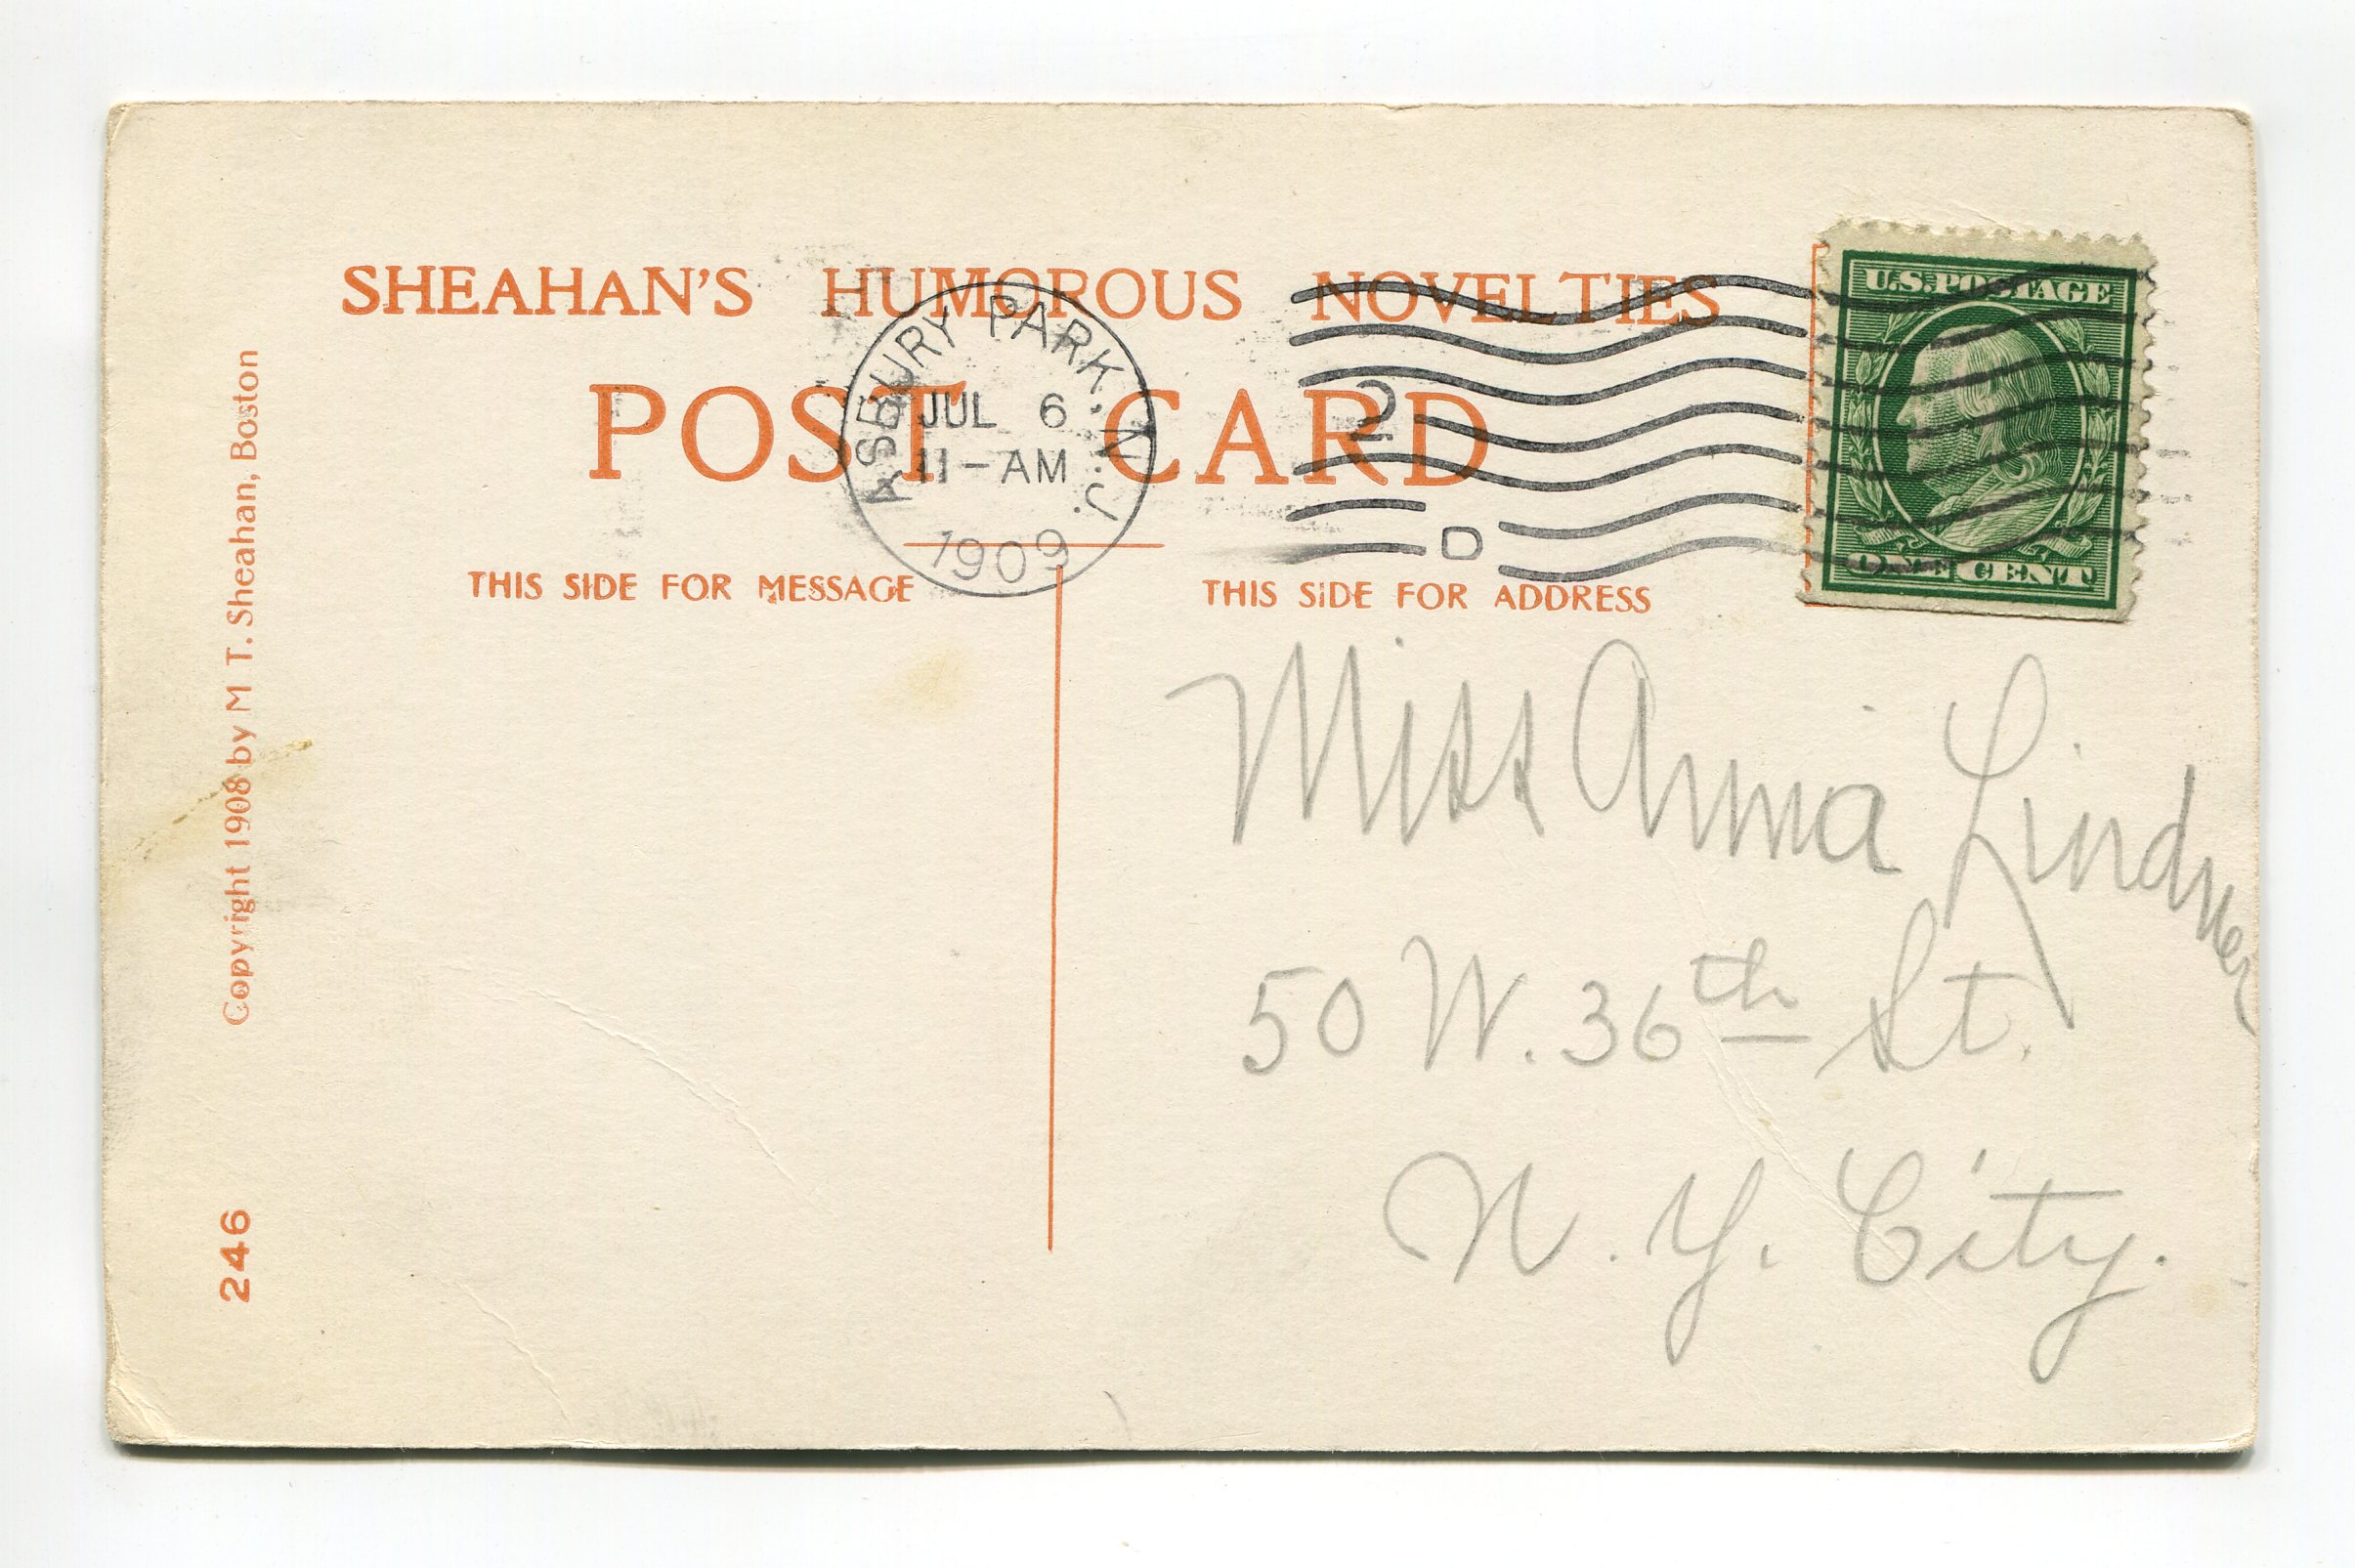 SHEAHAN'S HUMOROUS NOVELTIES
POST CARD
ASBURY PARK, N.J.
JUL 6
11-AM
1909
2
D
U.S. POSTAGE
ONE CENT
THIS SIDE FOR MESSAGE
THIS SIDE FOR ADDRESS
Miss Anna Lindner
50 W. 36th St.
N. Y. City.
Copyright 1908 by M T. Sheahan, Boston
246